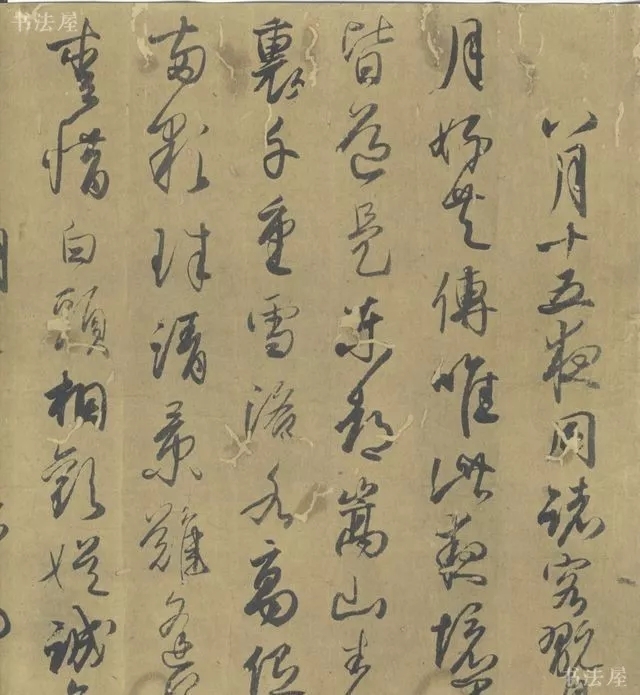 八月十五夜同諸客翫
月好共傳唯此夜境
皆道是東都嵩山表
裏千重雪洛水高低
兩顆珠清景難逢
愛惜白頭相歡娛誠
书法屋
书法屋